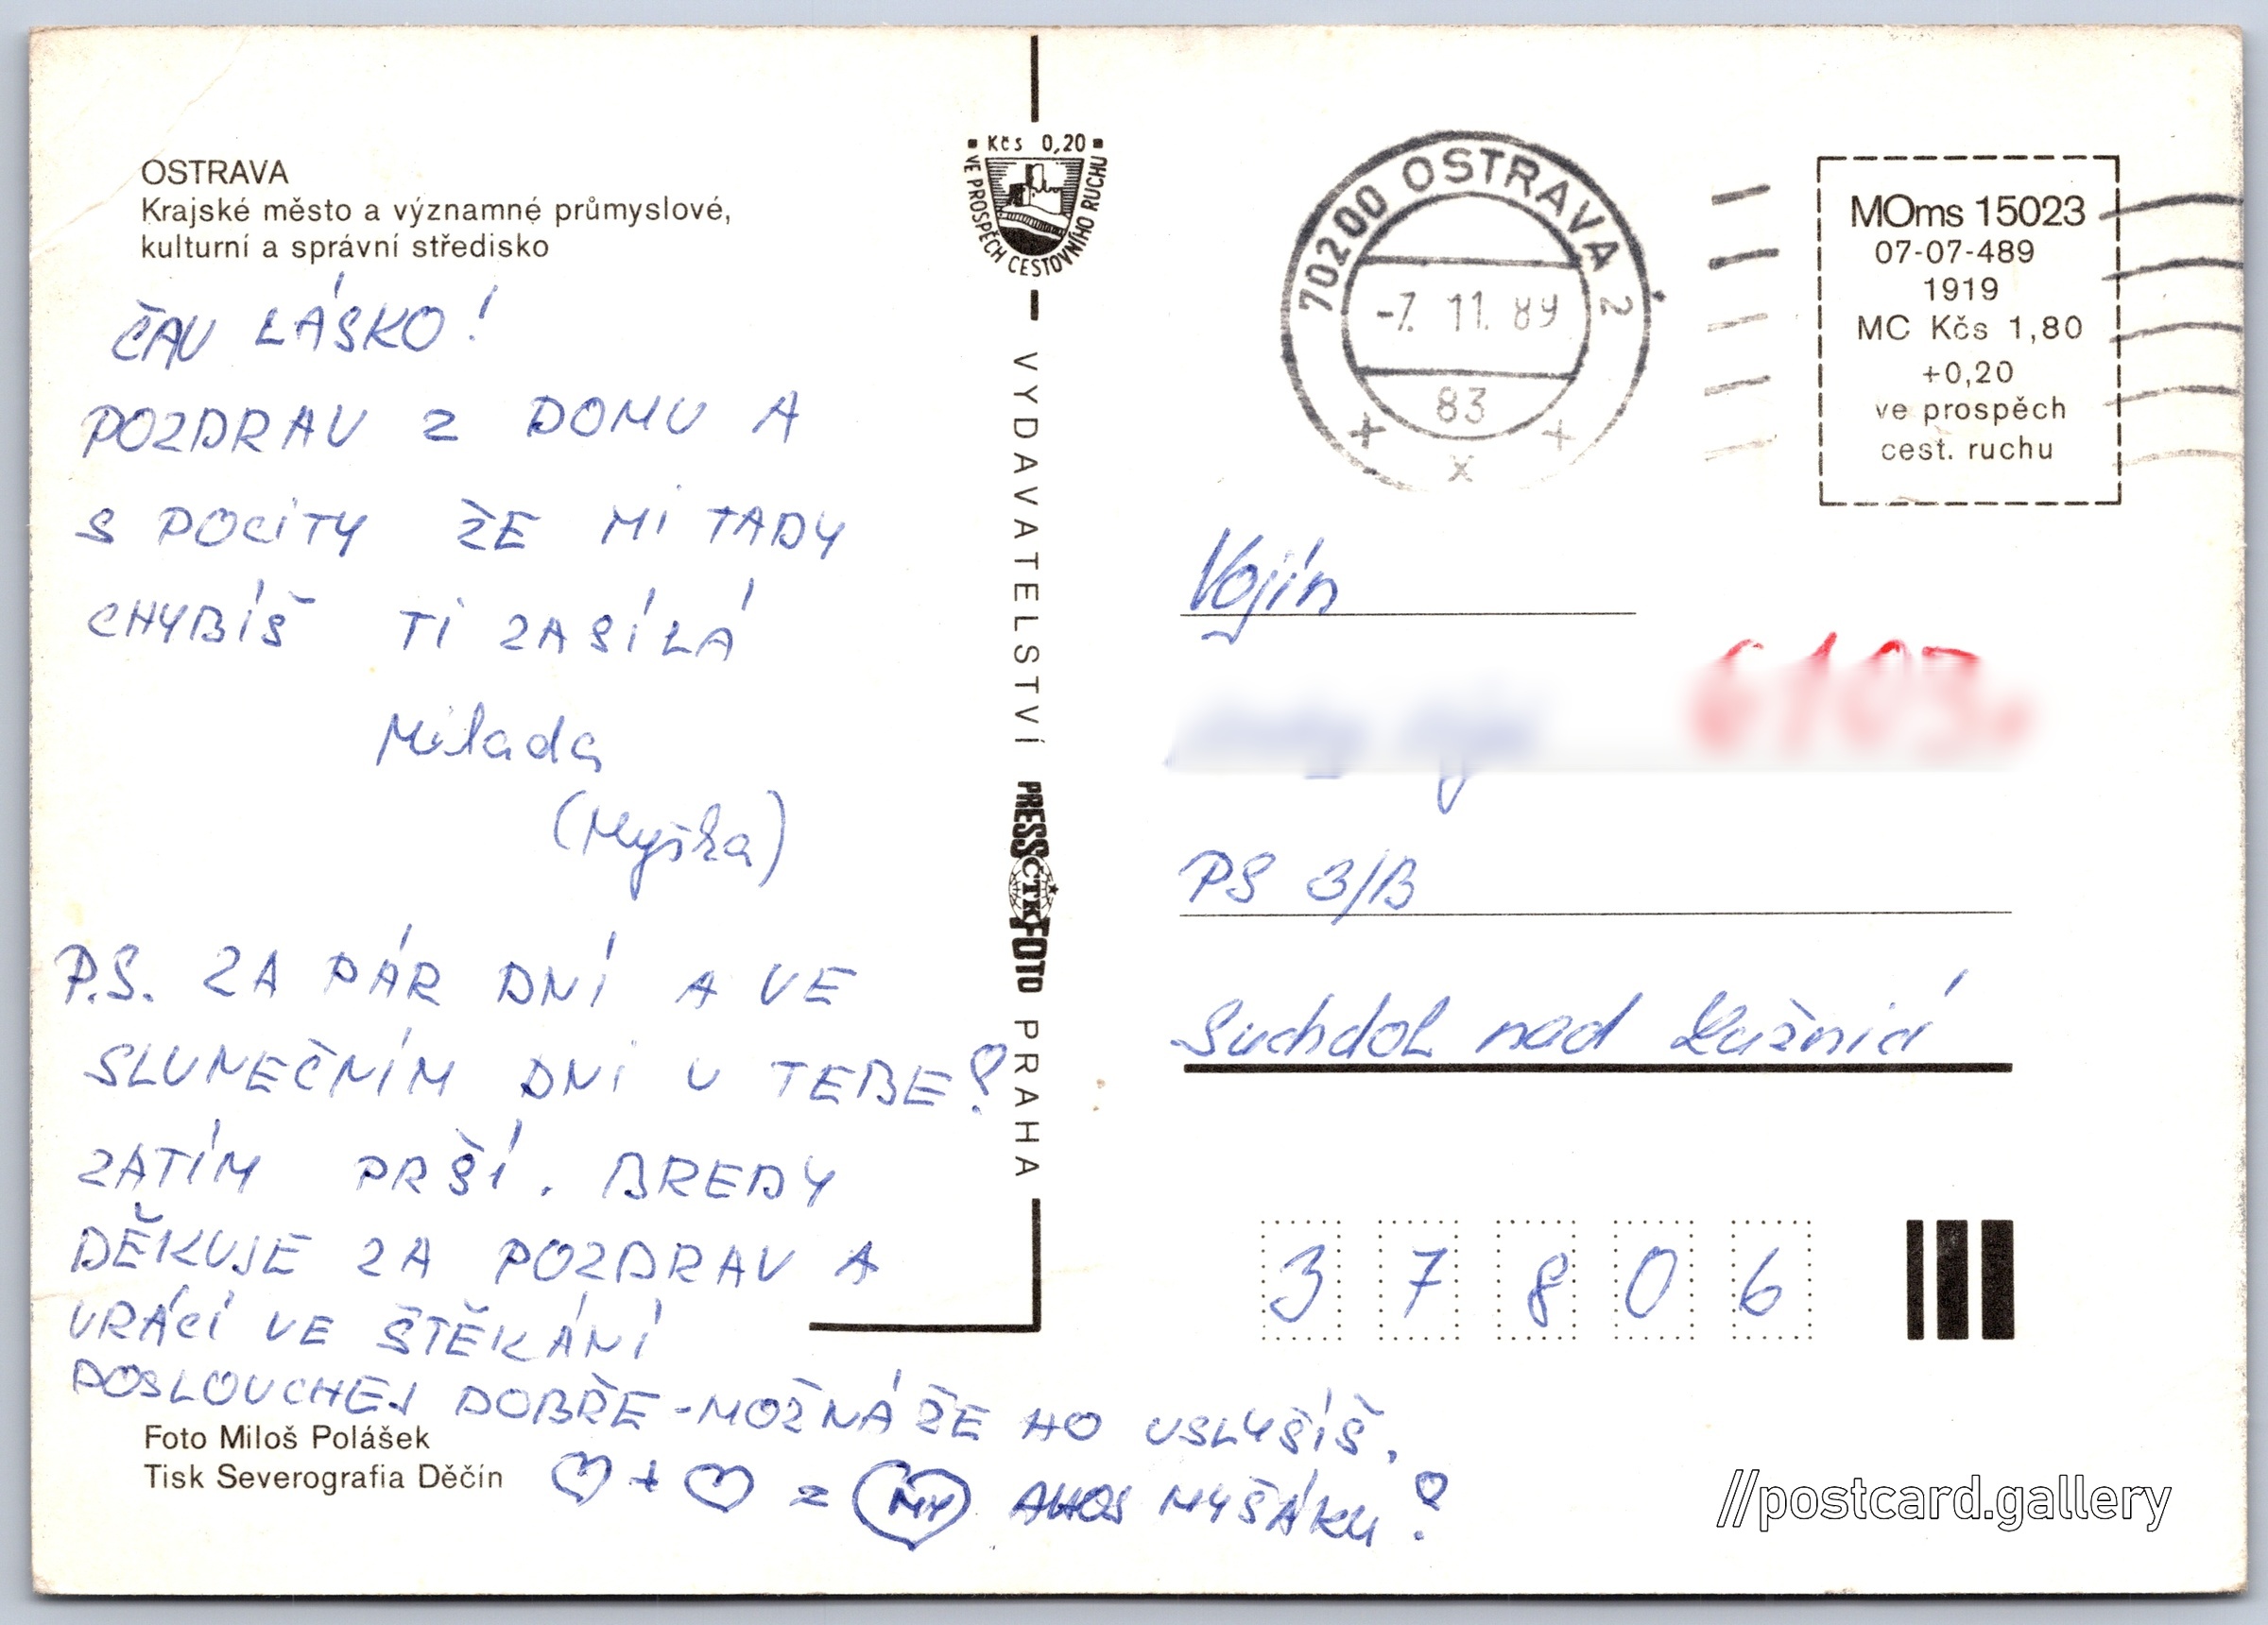 OSTRAVA
Krajské město a významné průmyslové,
kulturní a správní středisko
ČAU LÁSKO!
POZDRAV Z DOMU A
S POCITY ŽE MI TADY
CHYBÍŠ TI ZASÍLÁ
Milada
(Myška)
P.S. ZA PÁR DNÍ A VE
SLUNEČNÍM DNI U TEBE!
ZATÍM PRŠÍ. BREDY
DĚKUJE ZA POZDRAV A
VRÁCÍ VE ŠTĚKÁNÍ
POSLOUCHEJ DOBŘE-MOŽNÁ ŽE HO USLYŠÍŠ.
+ = MY AHOJ MYŠÁKU!
Foto Miloš Polášek
Tisk Severografia Děčín
Kčs 0,20
VE PROSPĚCH CESTOVNÍHO RUCHU
VYDAVATELSTVÍ PRESSFOTO PRAHA
ČTK
70200 OSTRAVA 2
-7. 11. 89
83
MOms 15023
07-07-489
1919
MC Kčs 1,80
+0,20
ve prospěch
cest. ruchu
Vojín
PS 3/B
Suchdol nad Lužnicí
37806
//postcard.gallery